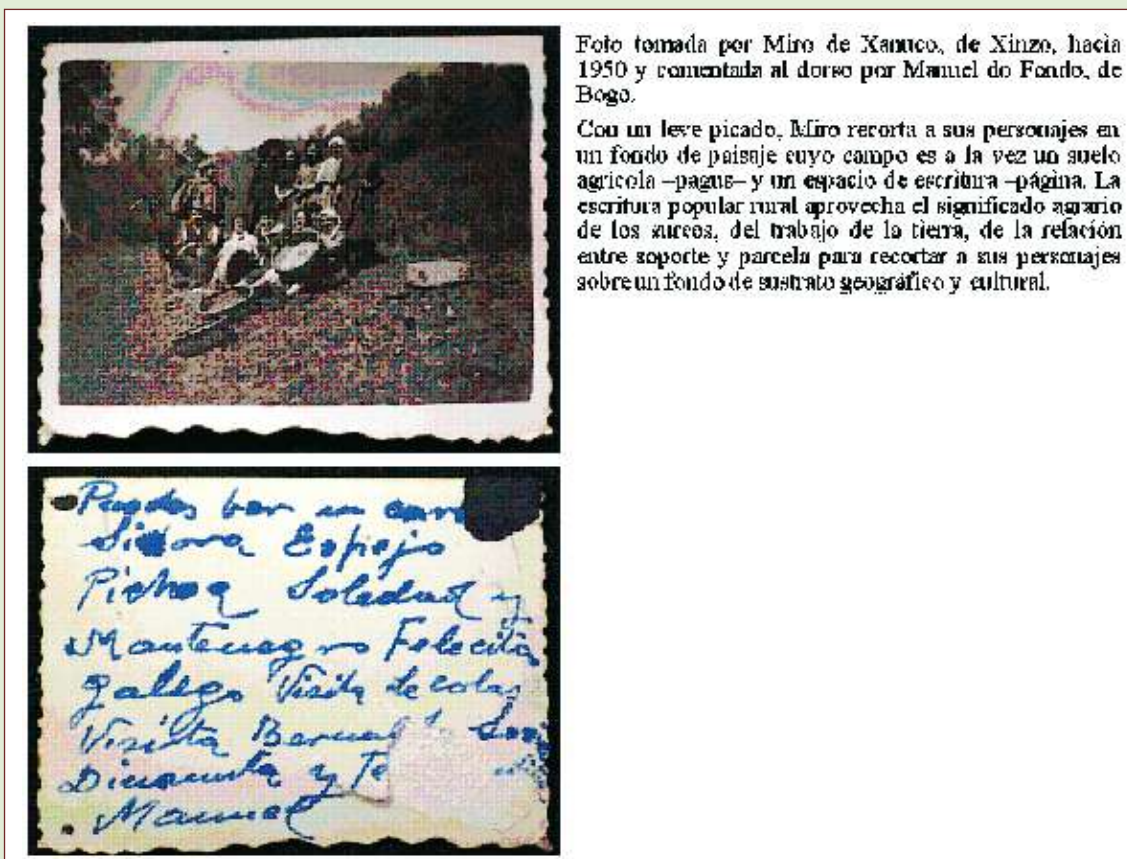 Foto tomada por Miro de Xanuco, de Xinzo, hacia
1950 y comentada al dorso por Manuel do Fondo, de
Bogo.
Con un leve picado, Miro recorta a sus personajes en
un fondo de paisaje cuyo campo es a la vez un suelo
agrícola –pagus– y un espacio de escritura –página. La
escritura popular rural aprovecha el significado agrario
de los surcos, del trabajo de la tierra, de la relación
entre soporte y parcela para recortar a sus personajes
sobre un fondo de sustrato geográfico y cultural.
Puedes ber un
Espejo
Soledad y
Montenegro
galego Visita
Visita
y
Manuel